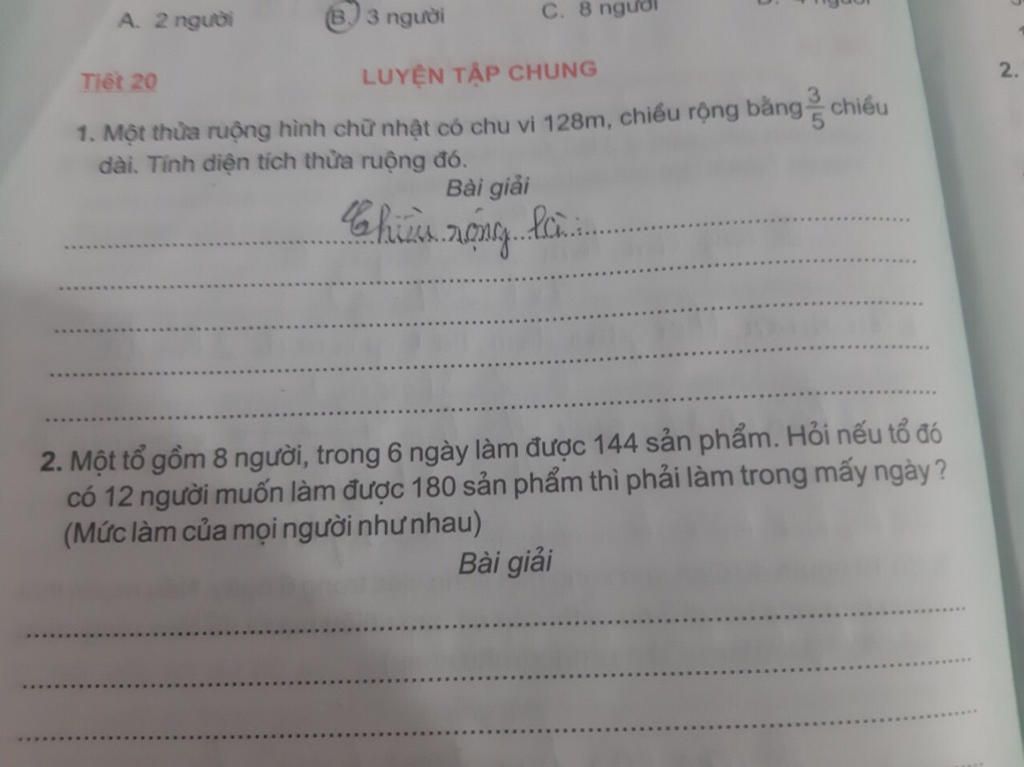 A. 2 người B. 3 người C. 8 người
Tiết 20 LUYỆN TẬP CHUNG
1. Một thửa ruộng hình chữ nhật có chu vi 128m, chiều rộng bằng 3/5 chiều
dài. Tính diện tích thửa ruộng đó.
Bài giải
Chiều rộng là:
2. Một tổ gồm 8 người, trong 6 ngày làm được 144 sản phẩm. Hỏi nếu tổ đó
có 12 người muốn làm được 180 sản phẩm thì phải làm trong mấy ngày?
(Mức làm của mọi người như nhau)
Bài giải
2.